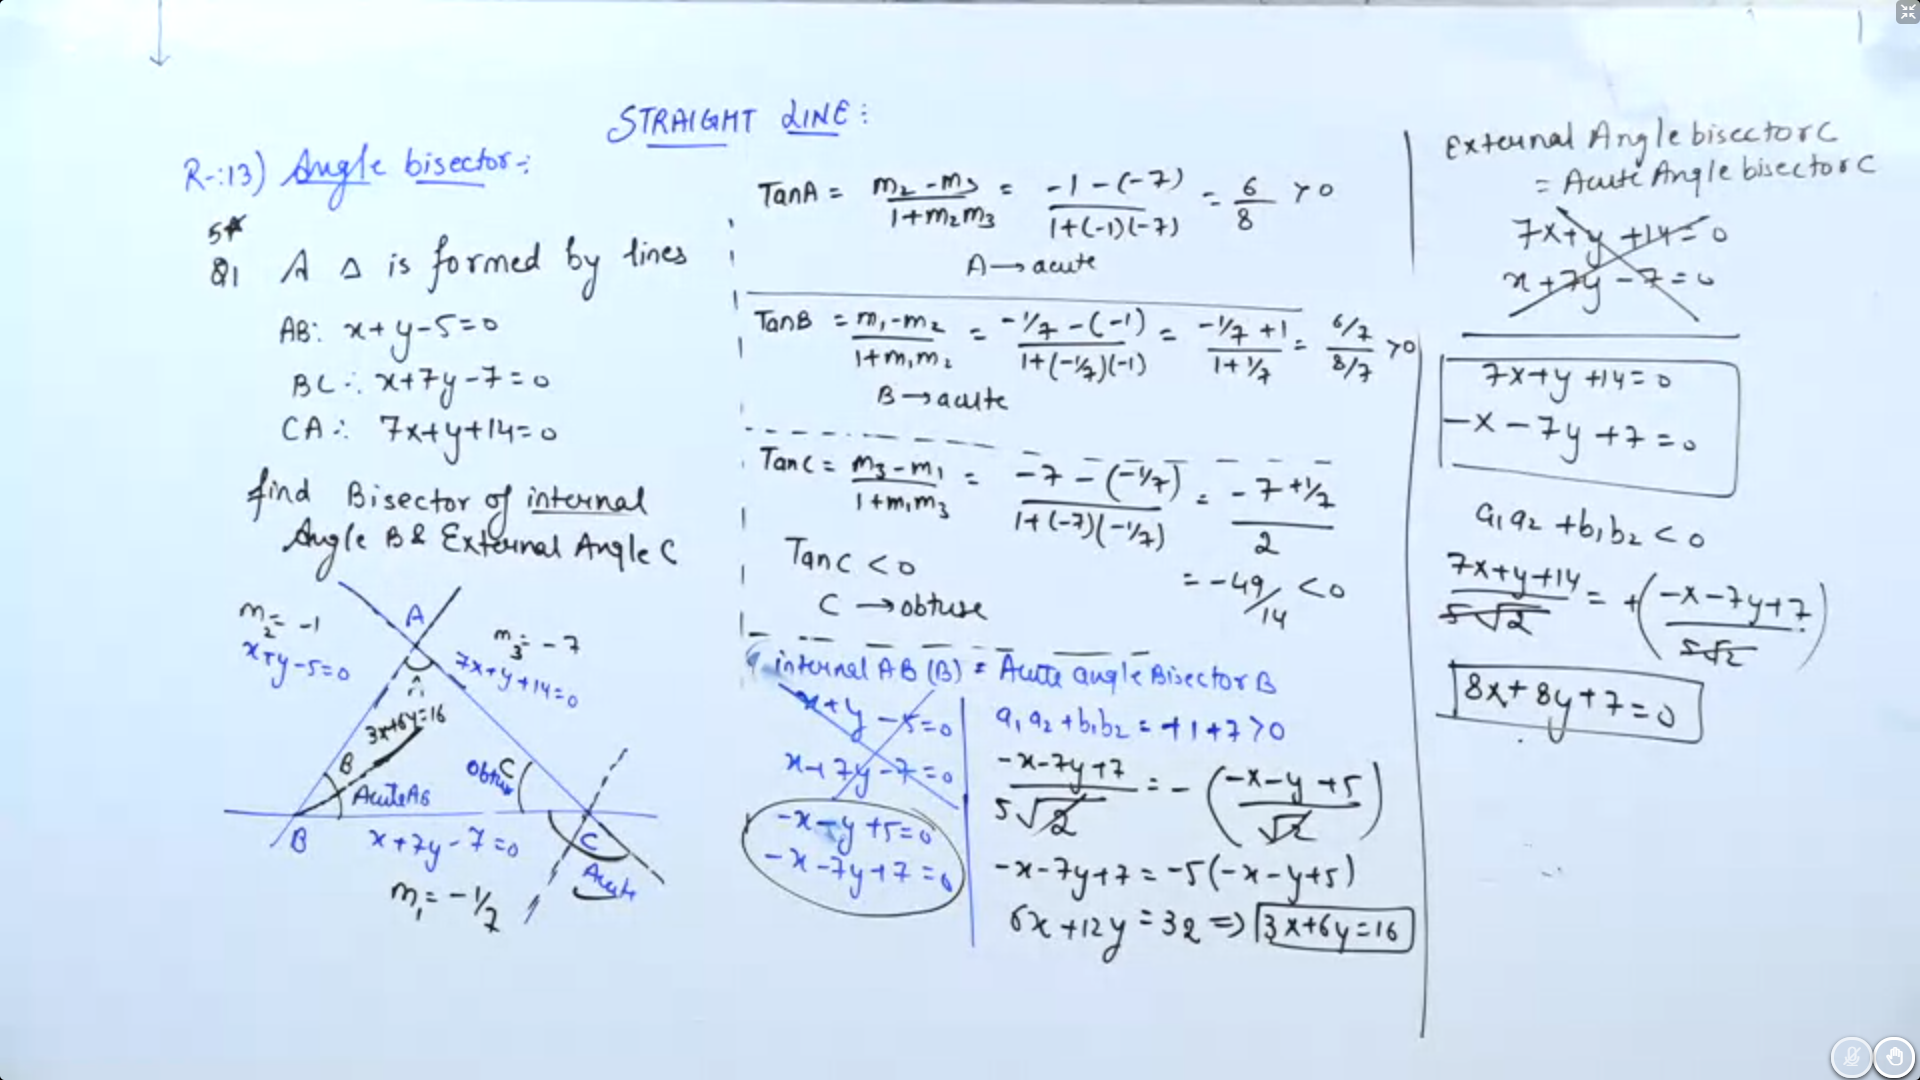 STRAIGHT LINE:
R-:13) Angle bisector:
5*
Q1 A Δ is formed by lines
AB: x+y-5=0
BC ∴ x+7y-7=0
CA ∴ 7x+y+14=0
find Bisector of internal
Angle B & External Angle C
m₂= -1
x+y-5=0
A
m₃= -7
7x+y+14=0
3x+6y=16
B
Acute AB
C
Obtuse
B
x+7y-7=0
C
Acute
m₁= -1/7
TanA = (m₂-m₃)/(1+m₂m₃) = (-1-(-7))/(1+(-1)(-7)) = 6/8 >0
A→acute
TanB = (m₁-m₂)/(1+m₁m₂) = (-1/7-(-1))/(1+(-1/7)(-1)) = (-1/7+1)/(1+1/7) = (6/7)/(8/7) >0
B→acute
TanC = (m₃-m₁)/(1+m₁m₃) = (-7-(-1/7))/(1+(-7)(-1/7)) = (-7+1/7)/2
TanC <0
= -49/14 <0
C →obtuse
internal AB (B) = Acute angle Bisector B
x+y-5=0
x+7y-7=0
-x-y+5=0
-x-7y+7=0
a₁a₂+b₁b₂ = +1+7>0
(-x-7y+7)/(5√2) = -((-x-y+5)/√2)
-x-7y+7 = -5(-x-y+5)
6x+12y=32 ⇒ 3x+6y=16
External Angle bisector C
= Acute Angle bisector C
7x+y+14=0
x+7y-7=0
7x+y+14=0
-x-7y+7=0
a₁a₂+b₁b₂<0
(7x+y+14)/(5√2) = +((-x-7y+7)/(5√2))
8x+8y+7=0